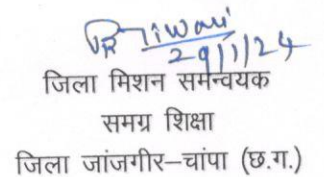 Tiwari
29/1/24
जिला मिशन समन्वयक
समग्र शिक्षा
जिला जांजगीर–चांपा (छ.ग.)